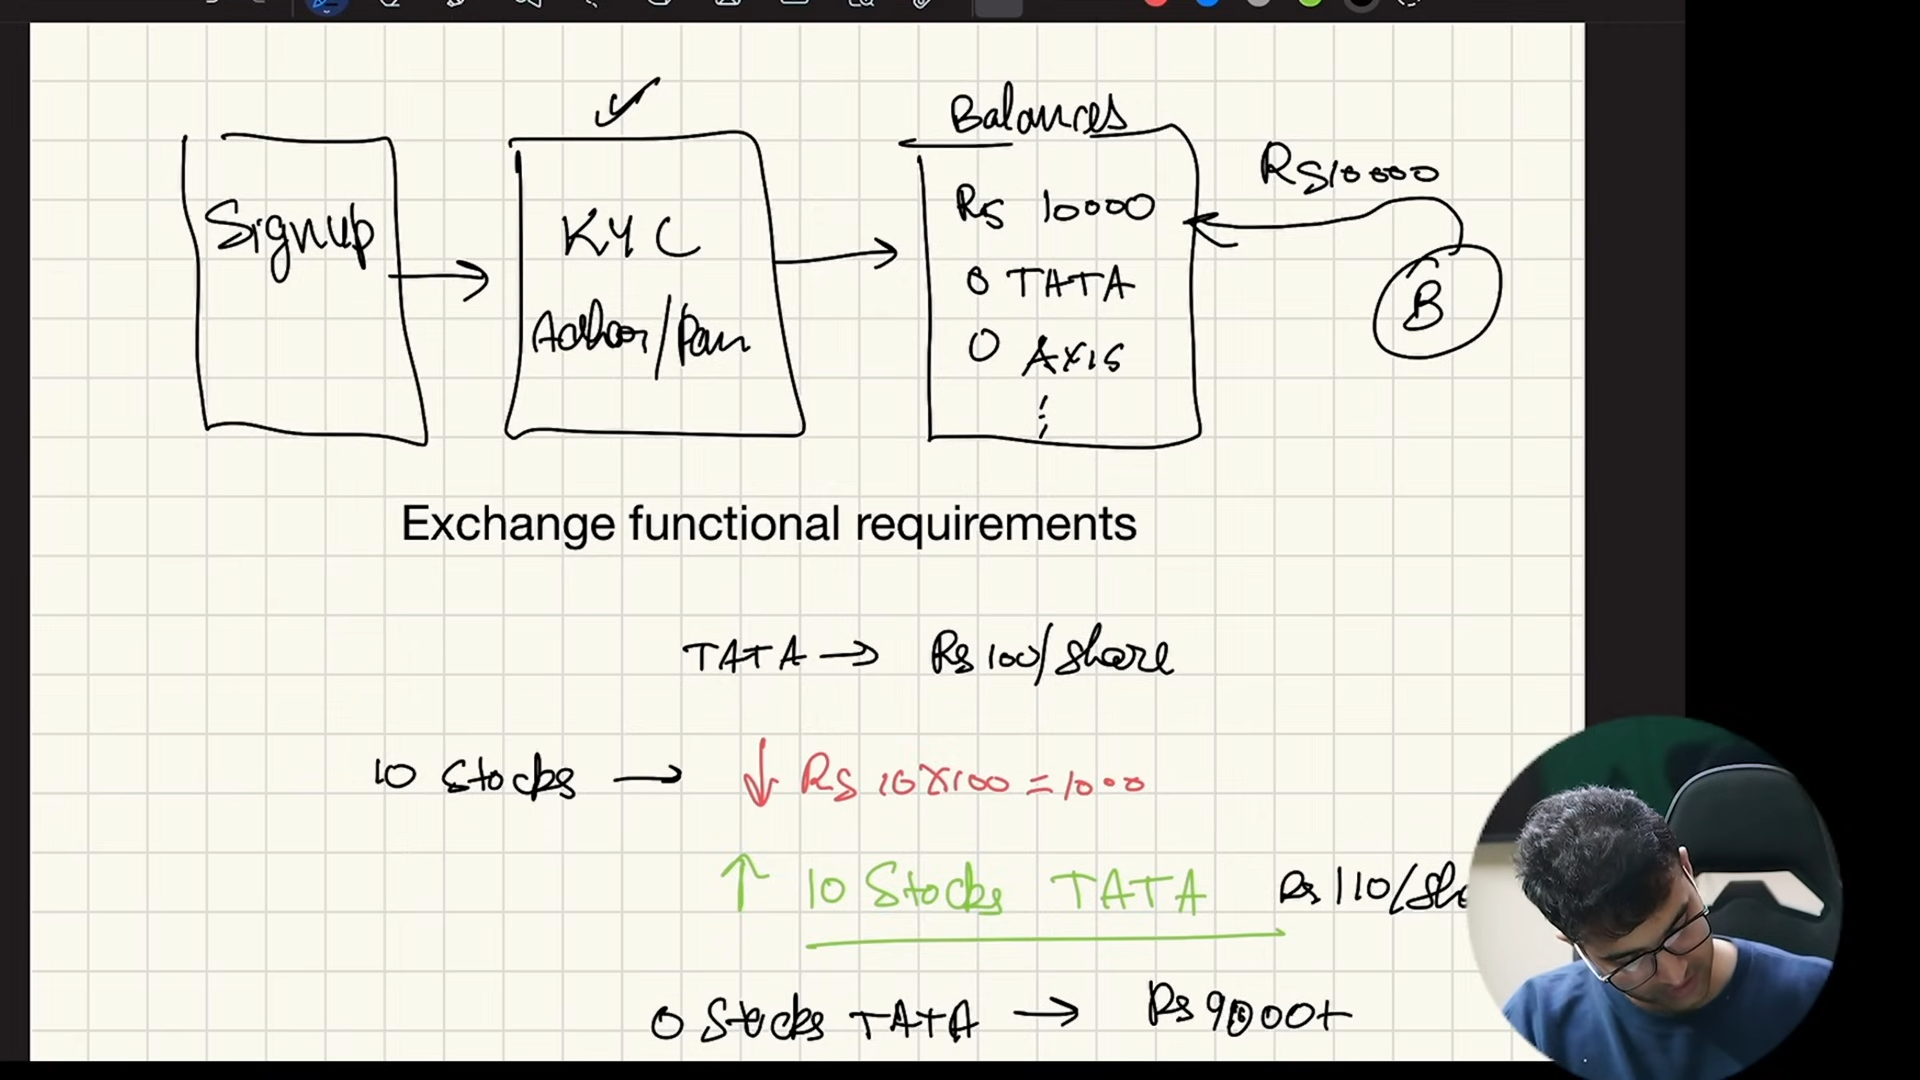 Balances
Signup
KYC
Adhar/Pan
Rs 10000
0 TATA
0 AXIS
Rs10000
B
Exchange functional requirements
TATA → Rs 100/share
10 Stocks → ↓ Rs 10X100 = 1000
↑ 10 Stocks TATA Rs 110/Sh
0 Stocks TATA → Rs 9000+